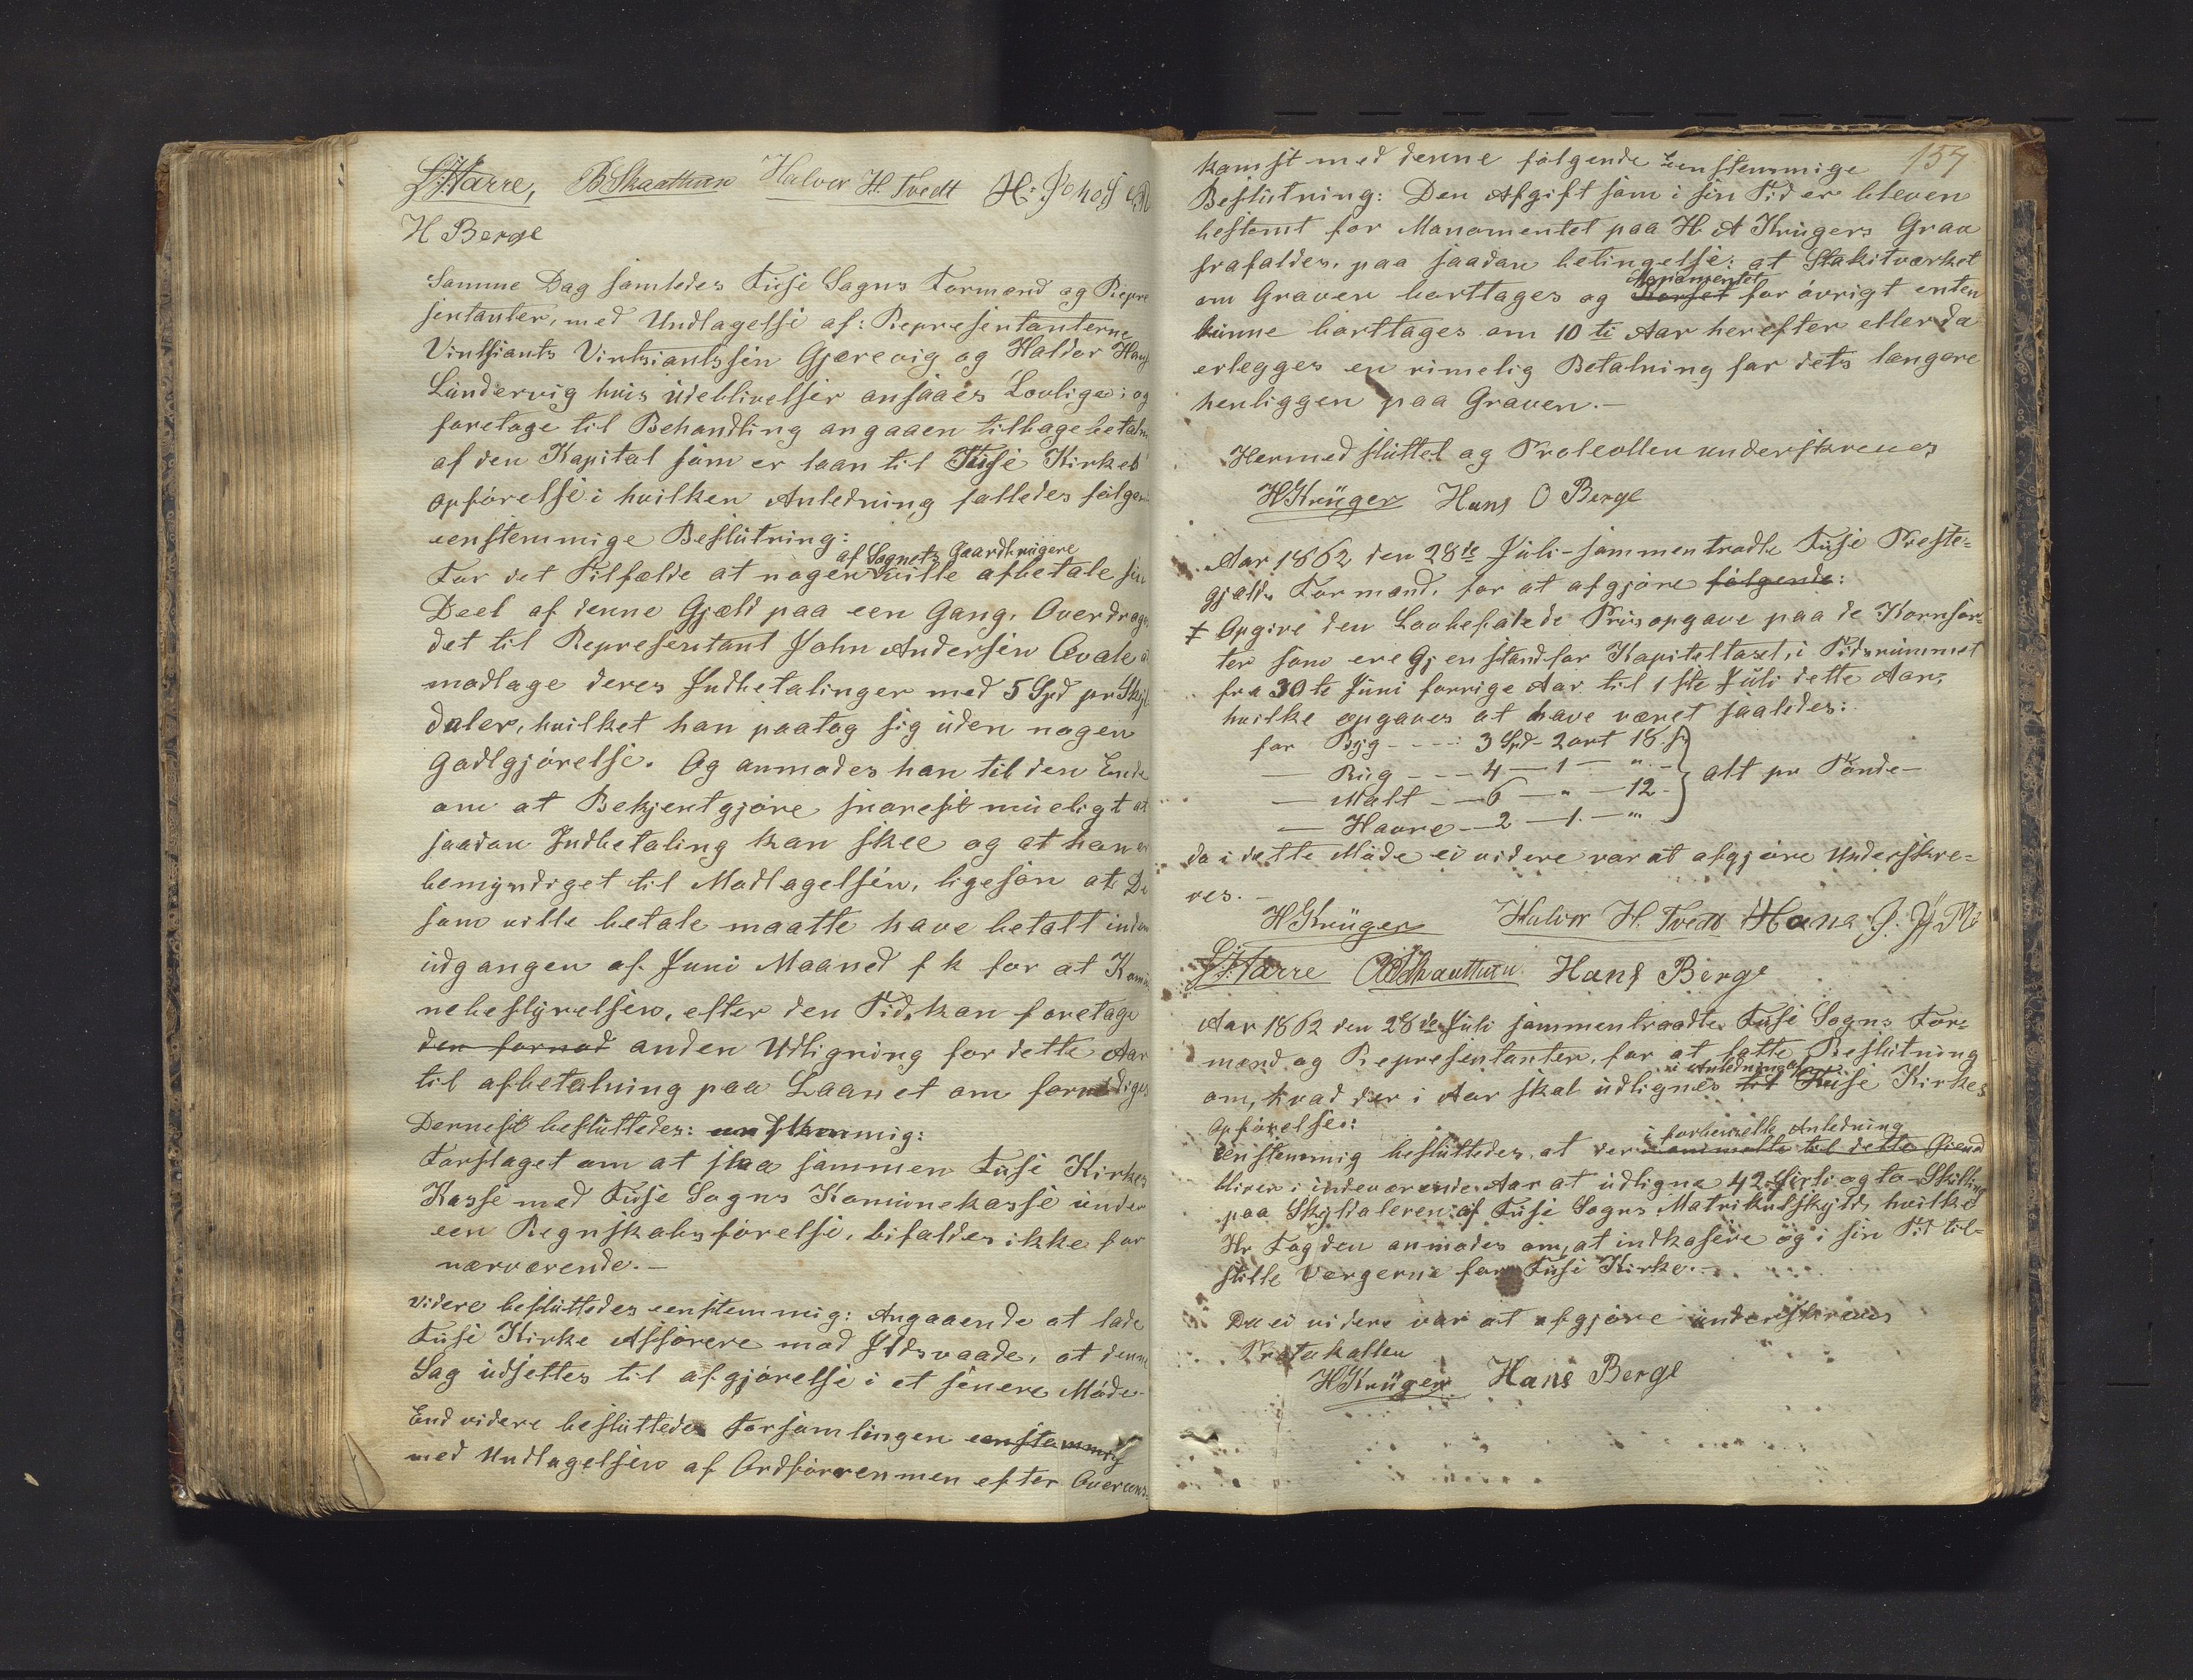 Harre, B Skaathun Halvor H. Tvedt H. Johs
H Berge
Samme Dag samledes Fuse Sogns Formænd og Repre
sentanter, med Undtagelse af: Representanterne
Vintsiants Vintsiantssen Gjærevig og Haldor Hans
Lindervig hvis udeblivelser ansaaes Lovlige; og
foretoge til Behandling angaaen tilbagebetaln
af den Kapital som er laan til Fuse Kirkes
opførelse i hvilken Anledning fattedes følgen
eenstemmige Beslutning:
af Sognets Gaardbrugere
For det Tilfælde at nogen ville afbetale sin
Deel af denne Gjæld paa een Gang, Overdroges
det til Representant John Andersen Ovale at
modtage deres Indbetalinger med 5 Spd pr Skyl
daler, hvilket han paatog sig uden nogen
Godtgjørelse. Og anmodes han til den Ende
om at Bekjentgjøre snarest mueligt at
saadan Indbetaling kan skee og at han er
bemyndiget til Modtagelsen, ligesom at De
som ville betale maatte have betalt inden
udgangen af Juni Maaned f k for at Komu
nebestyrelsen, efter den Tid, kan foretage
den fornød anden Udligning for dette Aar
til afbetalning paa Laanet om fornødiges
Dernest besluttedes: eenstemmig:
Forslaget om at slaa sammen Fuse Kirkes
Kasse med Fuse Sogns Komunekasse under
een Regnskabsførelse, bifaldes ikke for
nærværende.—
videre besluttedes eenstemmig: Angaaende at lade
Fuse Kirke Assurere mod Ildsvaade, at denne
Sag udsettes til afgjørelse i et senere Møde.
End videre besluttedes Forsamlingen eenstemmig
med Undtagelsen af Ordføreren men efter Overens-
157
komst med denne følgende Eenstemmige
Beslutning: Den Afgift som i sin Tid er bleven
bestemt for Monomentet paa H. A Krügers Grav
frafaldes, paa saadan betingelse: at Stakitværket
Monomentet
om Graven borttages og Korset for øvrigt enten
kunne borttages om 10 ti Aar herefter eller da
erlegges en rimelig Betalning for dets længere
henliggen paa Graven.—
Hermed sluttet og Protocollen underskreves
HKrüger Hans O Berge
Aar 1862 den 28de Juli sammentradte Fuse Preste-
gjælds Formænd, for at afgjøre følgende:
‡ Opgive den Lovbefalede Prisopgave paa de Kornsor-
ter som ere Gjenstand for Kapiteltaxt, i Tidsrummet
fra 30te Juni forrige Aar til 1ste Juli dette Aar,
hvilke opgaves at have været saaledes:
for Byg - - - - 3 Spd - 2 ort 18 s
— Rug - - - 4 — 1 — " -
— Malt - - 6 — " — 12 - } alt pr Tønde—
— Havre — 2 — 1. — "
da i dette Møde ei videre var at afgjøre Underskre-
ves.
HKrüger Halvor H. Tvedt Hans J.
Harre B Skaathun Hans Berge
Aar 1862 den 28de Juli sammentraadte Fuse Sogns For-
mænd og Representanter, for at fatte Beslutning
i Anledning af
om, hvad der i Aar skal udlignes til Fuse Kirkes
Opførelse:
i forbemelte Anledning
Eenstemmig besluttedes, at der ommelte til dette Øiemd
bliver i indeværende Aar at udligne 42 firti og to Skilling
paa Skyldaleren af Fuse Sogns Matrikulskyld, hvilke
Hr Fogden anmodes om, at indkasere og i sin Tid til-
stille Vergerne for Fuse Kirke.—
Da ei videre var at afgjøre underskreves
Protokollen
HKrüger Hans Berge